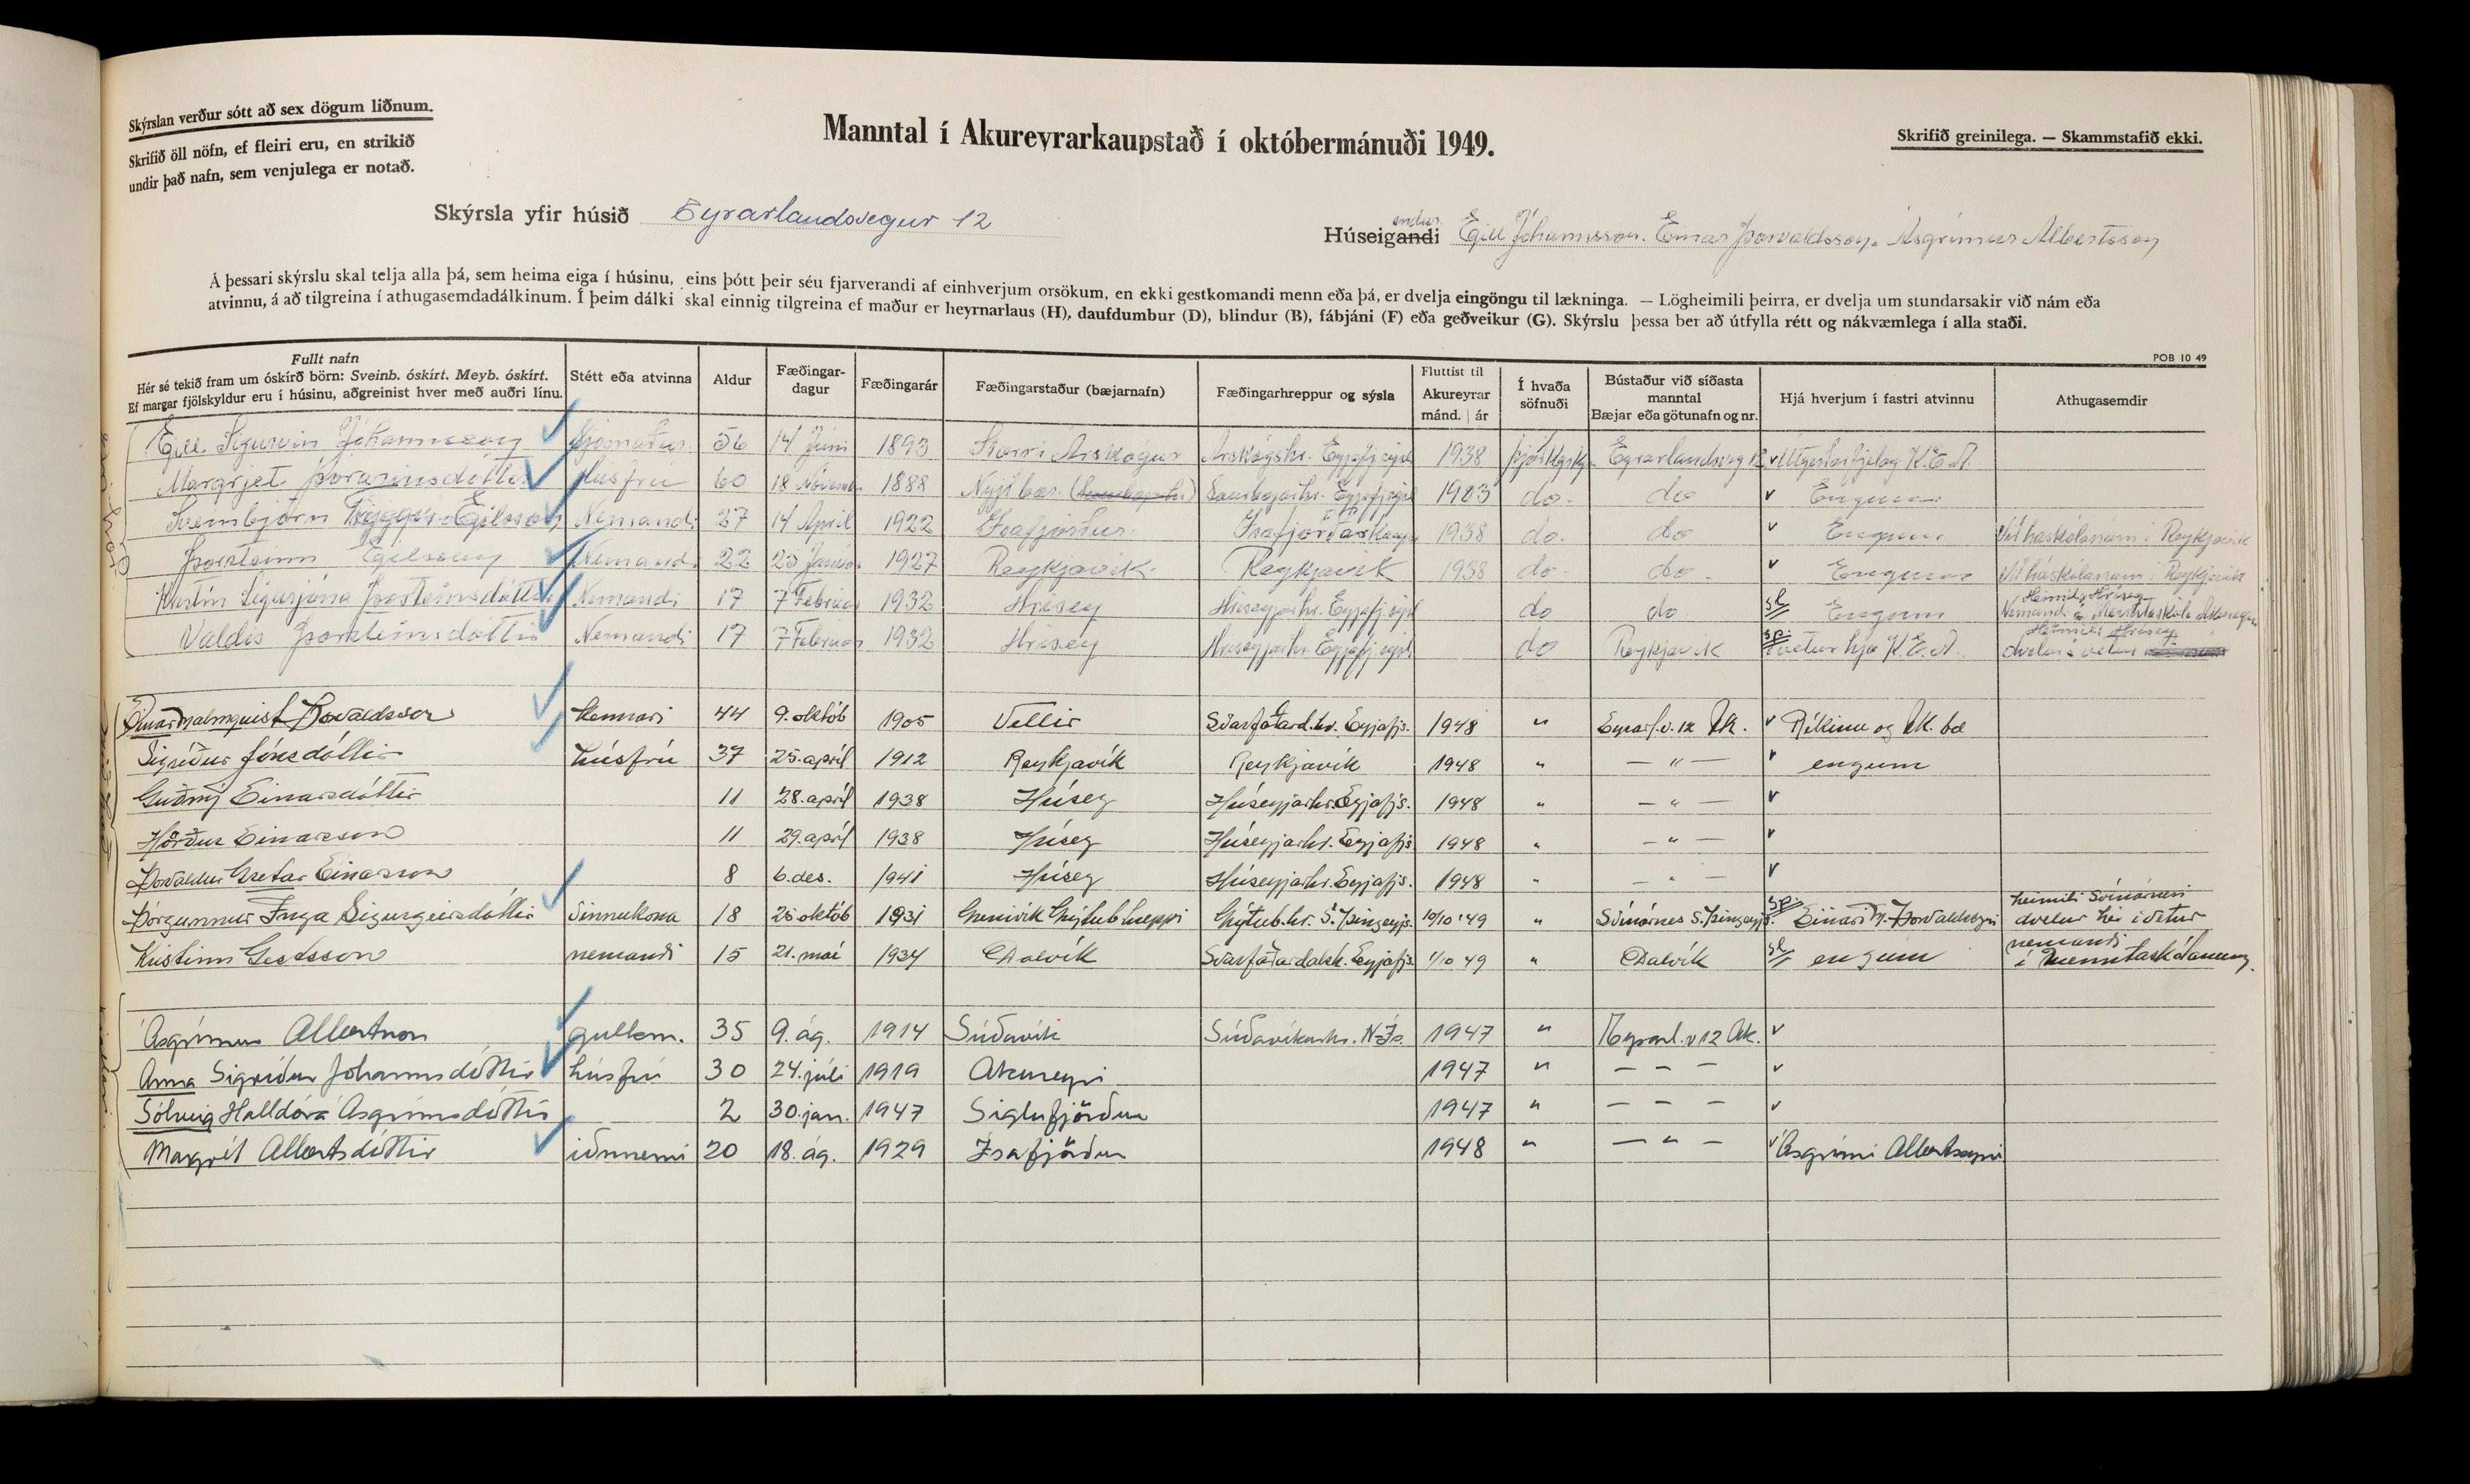 Skýrslan verður sótt að sex dögum liðnum.
Skrifið öll nöfn, ef fleiri eru, en strikið
undir það nafn, sem venjulega er notað.
Manntal í Akureyrarkaupstað í októbermánuði 1949.
Skrifið greinilega. — Skammstafið ekki.
Skýrsla yfir húsið Eyrarlandsvegur 12
Húseigandi endur Egill Jóhannsson. Einar Þorvaldsson. Ásgrímur Albertsson
Á þessari skýrslu skal telja alla þá, sem heima eiga í húsinu, eins þótt þeir séu fjarverandi af einhverjum orsökum, en ekki gestkomandi menn eða þá, er dvelja eingöngu til lækninga. — Lögheimili þeirra, er dvelja um stundarsakir við nám eða
atvinnu, á að tilgreina í athugasemdadálkinum. Í þeim dálki skal einnig tilgreina ef maður er heyrnarlaus (H), daufdumbur (D), blindur (B), fábjáni (F) eða geðveikur (G). Skýrslu þessa ber að útfylla rétt og nákvæmlega í alla staði.
POB 10 49
Fullt nafn
Hér sé tekið fram um óskírð börn: Sveinb. óskírt. Meyb. óskírt.
Ef margar fjölskyldur eru í húsinu, aðgreinist hver með auðri línu.
Stétt eða atvinna
Aldur
Fæðingar-
dagur
Fæðingarár
Fæðingarstaður (bæjarnafn)
Fæðingarhreppur og sýsla
Fluttist til
Akureyrar
mánd. | ár
Í hvaða
söfnuði
Bústaður við síðasta
manntal
Bæjar eða götunafn og nr.
Hjá hverjum í fastri atvinnu
Athugasemdir
Egill Sigurvin Jóhannsson Sjómaður 56 14 Júní 1893 Stærri Árskógur Árskógshr. Eyjafj.sýsl 1938 Þjóðkirkj. Eyrarlandsveg 12 Útgerðarfjelag K.E.A.
Margrjet Þorsteinsdóttir Húsfrú 60 18 Nóvember 1888 Nýji bær. Eyjafj.sýsl 1903 do. do Engum
Sveinbjörn Tryggvi Egilsson Nemandi 27 14 Apríl 1922 Ísafjörður. Ísafjarðarkaup. 1938 do. do Engum Við háskólanám í Reykjavík
Þorsteinn Egilsson Nemandi 22 25 Janúar 1927 Reykjavík Reykjavík 1938 do. do. Engum Við háskólanám í Reykjavík
Kristín Sigurjóna Þorsteinsdóttir Nemandi 17 7 Febrúar 1932 Hrísey Hríseyjarhr. Eyjafj.sýsl do do sk Engum Heimili Hrísey Nemandi í Menntaskóla Akureyrar
Valdís Þorsteinsdóttir Nemandi 17 7 Febrúar 1932 Hrísey Hríseyjarhr. Eyjafj.sýsl do Reykjavík sp. í vetur hjá K.E.A. Heimili Hrísey dvelur í vetur
Einar Malmquist Þorvaldsson kennari 44 9. októb 1905 Vellir Svarfaðard.hr. Eyjafjs. 1948 " Eyrarl.v. 12 Ak. Ríkinu og Ak. bæ
Sigríður Jónsdóttir húsfrú 37 25. apríl 1912 Reykjavík Reykjavík 1948 " — " — engum
Guðný Einarsdóttir 11 28. apríl 1938 Hrísey Hríseyjarhr. Eyjafjs. 1948 " — " —
Hörður Einarsson 11 29. apríl 1938 Hrísey Hríseyjarhr. Eyjafjs. 1948 " — " —
Þorvaldur Gretar Einarsson 8 6. des. 1941 Hrísey Hríseyjarhr. Eyjafjs. 1948 " — " —
Þórgunnur Inga Sigurgeirsdóttir vinnukona 18 25 októb 1931 Grenivík Grýtubhreppi Grýtub.hr. S.-Þingeyjs. 10/10 '49 " Svínárnes S.Þingeyjs. sp. Einari M. Þorvaldssyni heimili Svínárnesi dvelur hér í vetur
Kristinn Gestsson nemandi 15 21. maí 1934 Dalvík Svarfaðardalsh. Eyjafjs. 1/10 49 " Dalvík sk engum nemandi í Menntaskólanum
Ásgrímur Albertsson gullsm. 35 9. ág. 1914 Súðavík Súðavíkurhr. N-Ís. 1947 " Eyrarl.v 12 Ak.
Anna Sigríður Jóhannsdóttir húsfrú 30 24. júlí 1919 Akureyri 1947 " — — —
Sólveig Halldóra Ásgrímsdóttir 2 30. jan. 1947 Siglufjörður 1947 " — — —
Margrét Albertsdóttir iðnnemi 20 18. ág. 1929 Ísafjörður 1948 " — " — Ásgrími Albertssyni